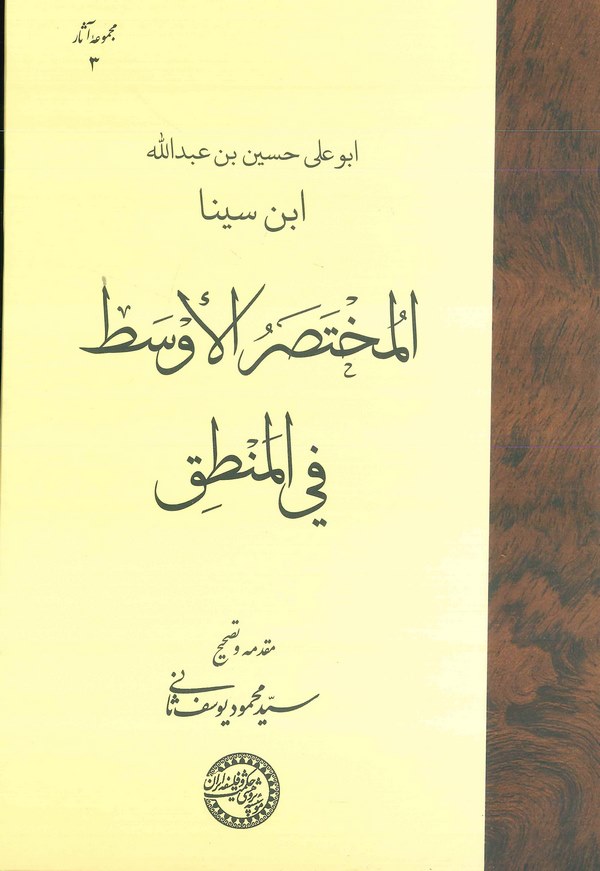 مجموعهٔ آثار
۳
ابو علی حسین بن عبدالله
ابن سینا
المُختَصَرُ الأَوسَط
في المَنطِق
مقدمه و تصحیح
سیّد محمود یوسف ثانی
مؤسسه پژوهشی حکمت و فلسفه ایران